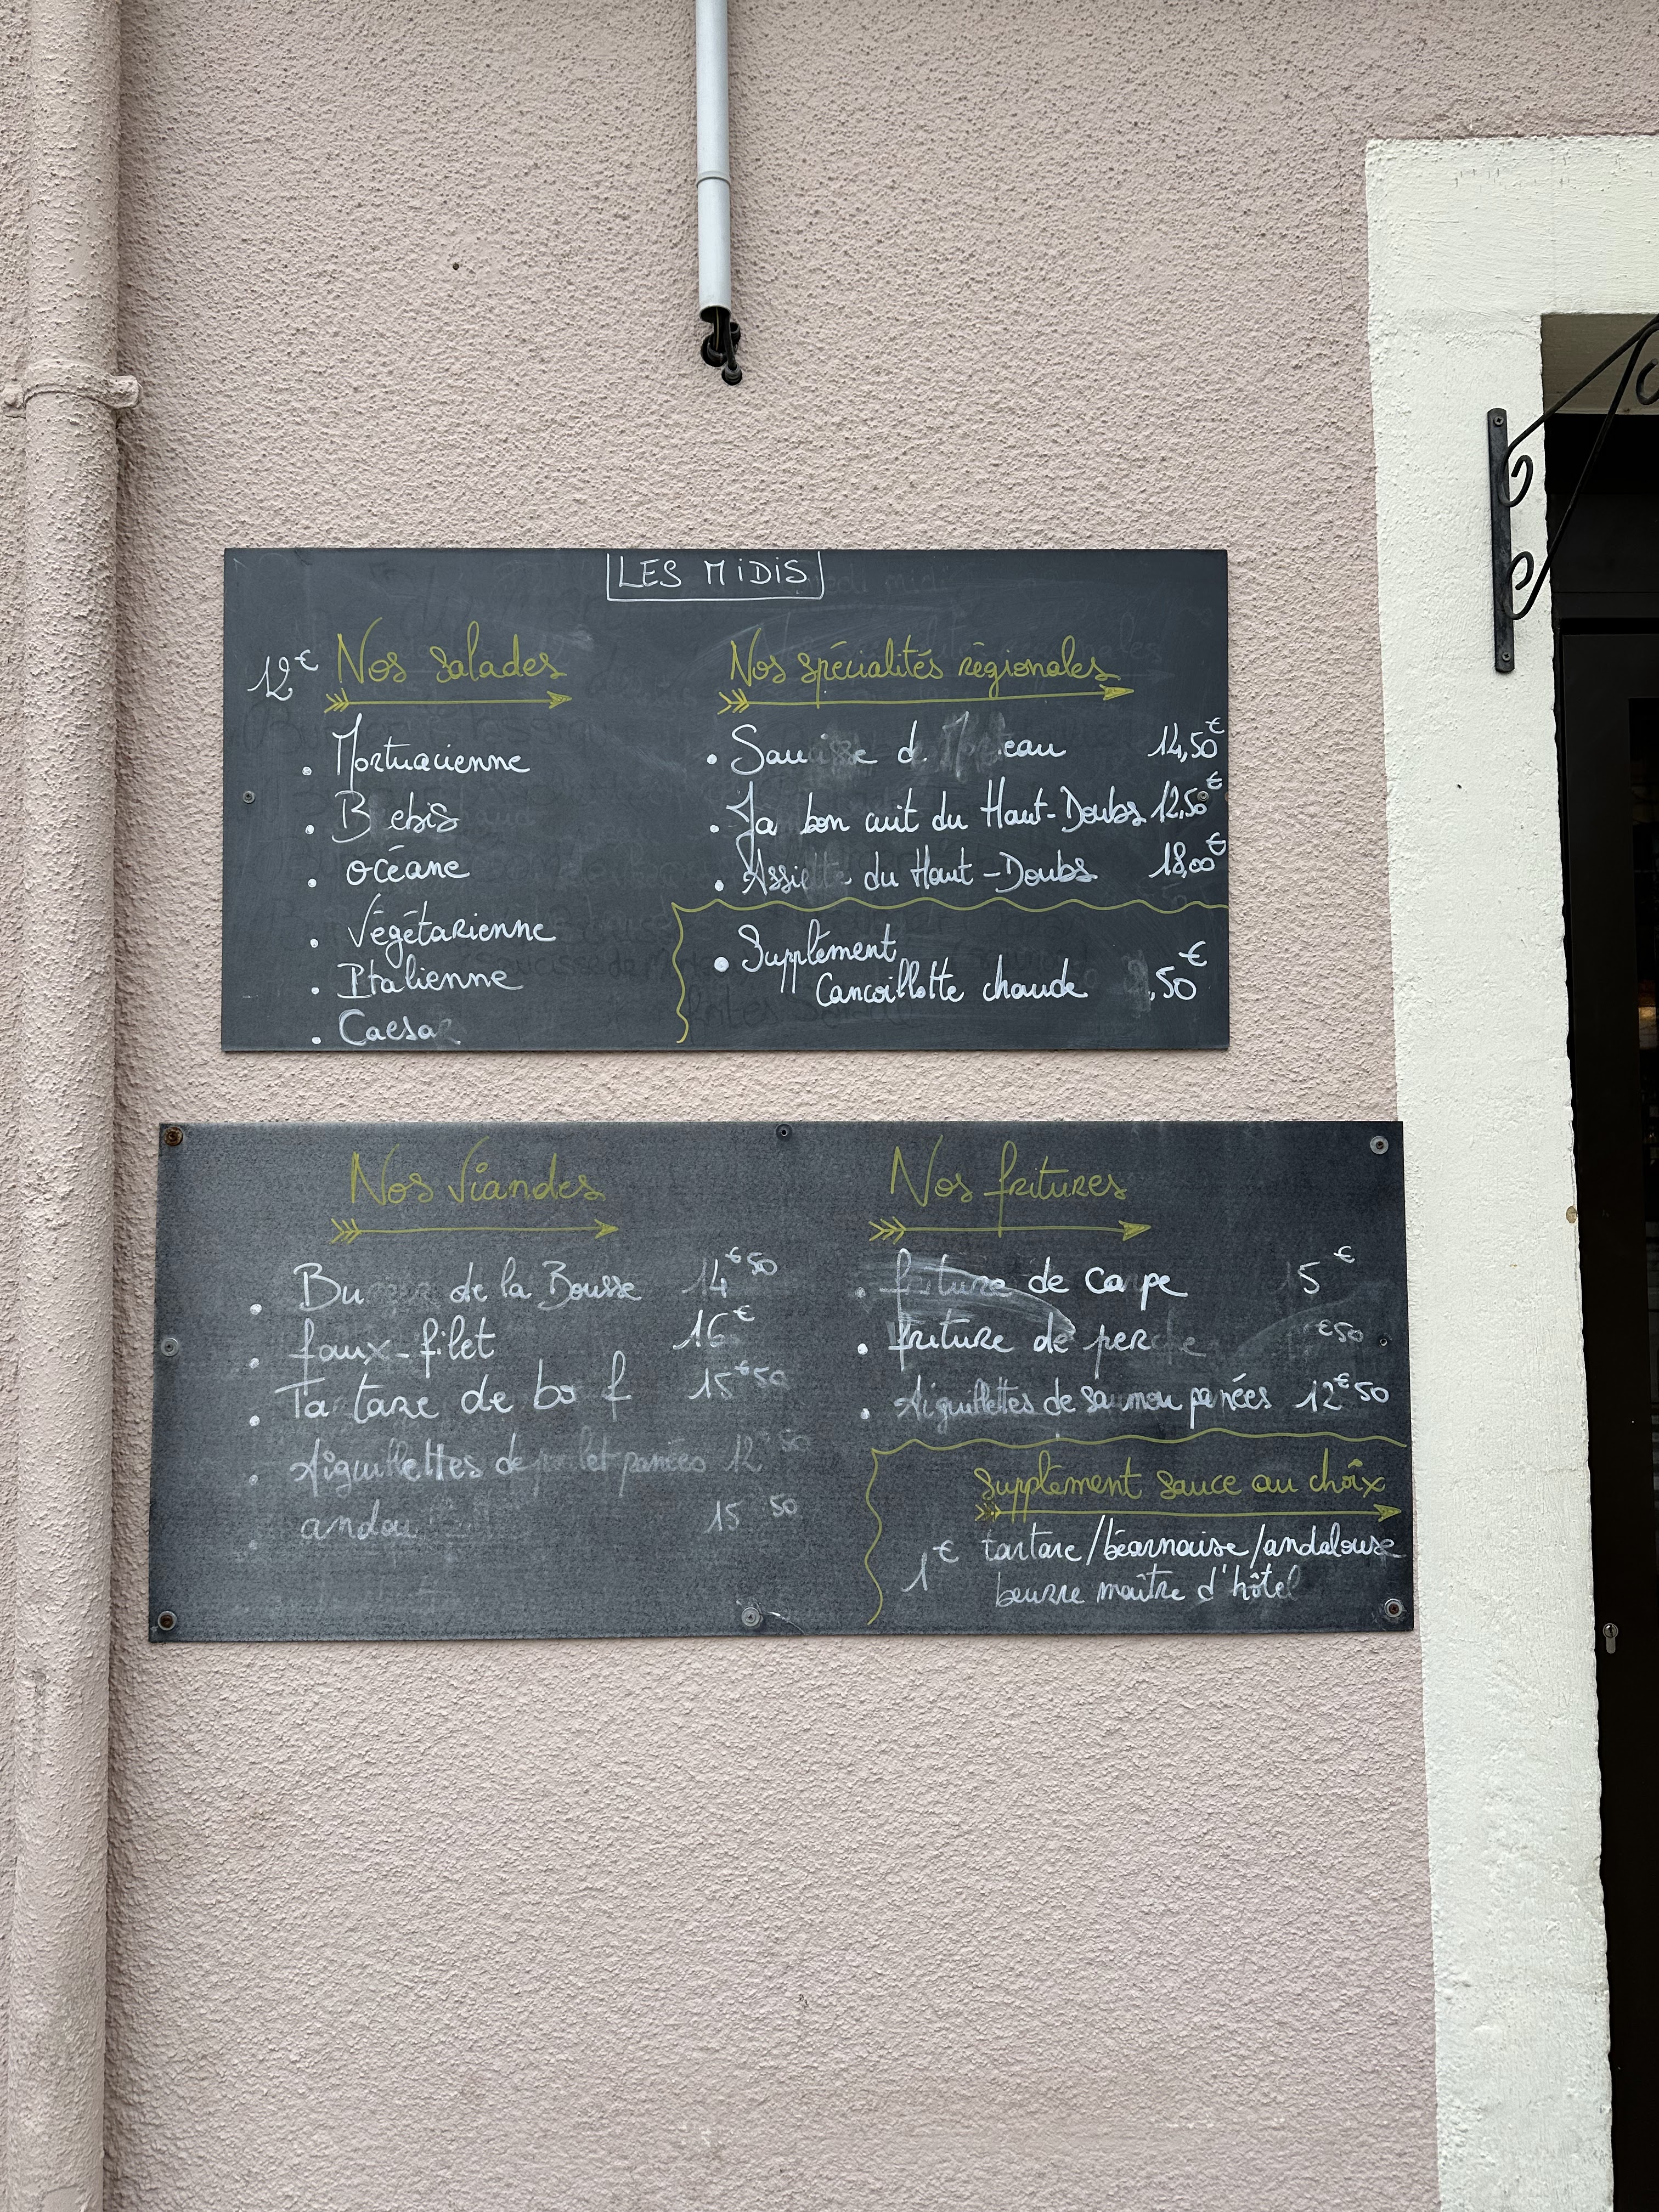 LES MIDIS
12€ Nos salades
Mortuacienne
B ebis
océane
Végétarienne
Italienne
Caesar
Nos spécialités régionales
eau 14,50€
Ja bon cuit du Haut-Doubs 12,50€
Assiette du Haut-Doubs 18,00€
Supplément
Cancoillotte chaude ,50€
Nos Viandes
de la Bousse 14€50
faux-filet 16€
Ta tare de bo f 15€50
Aiguillettes de panées 12 50
15 50
Nos fritures
friture de Ca pe 5€
friture de €50
Aiguillettes de saumon panées 12€50
Supplément sauce au choix
1€ tartare/béarnaise/andalouse
beurre maître d'hôtel